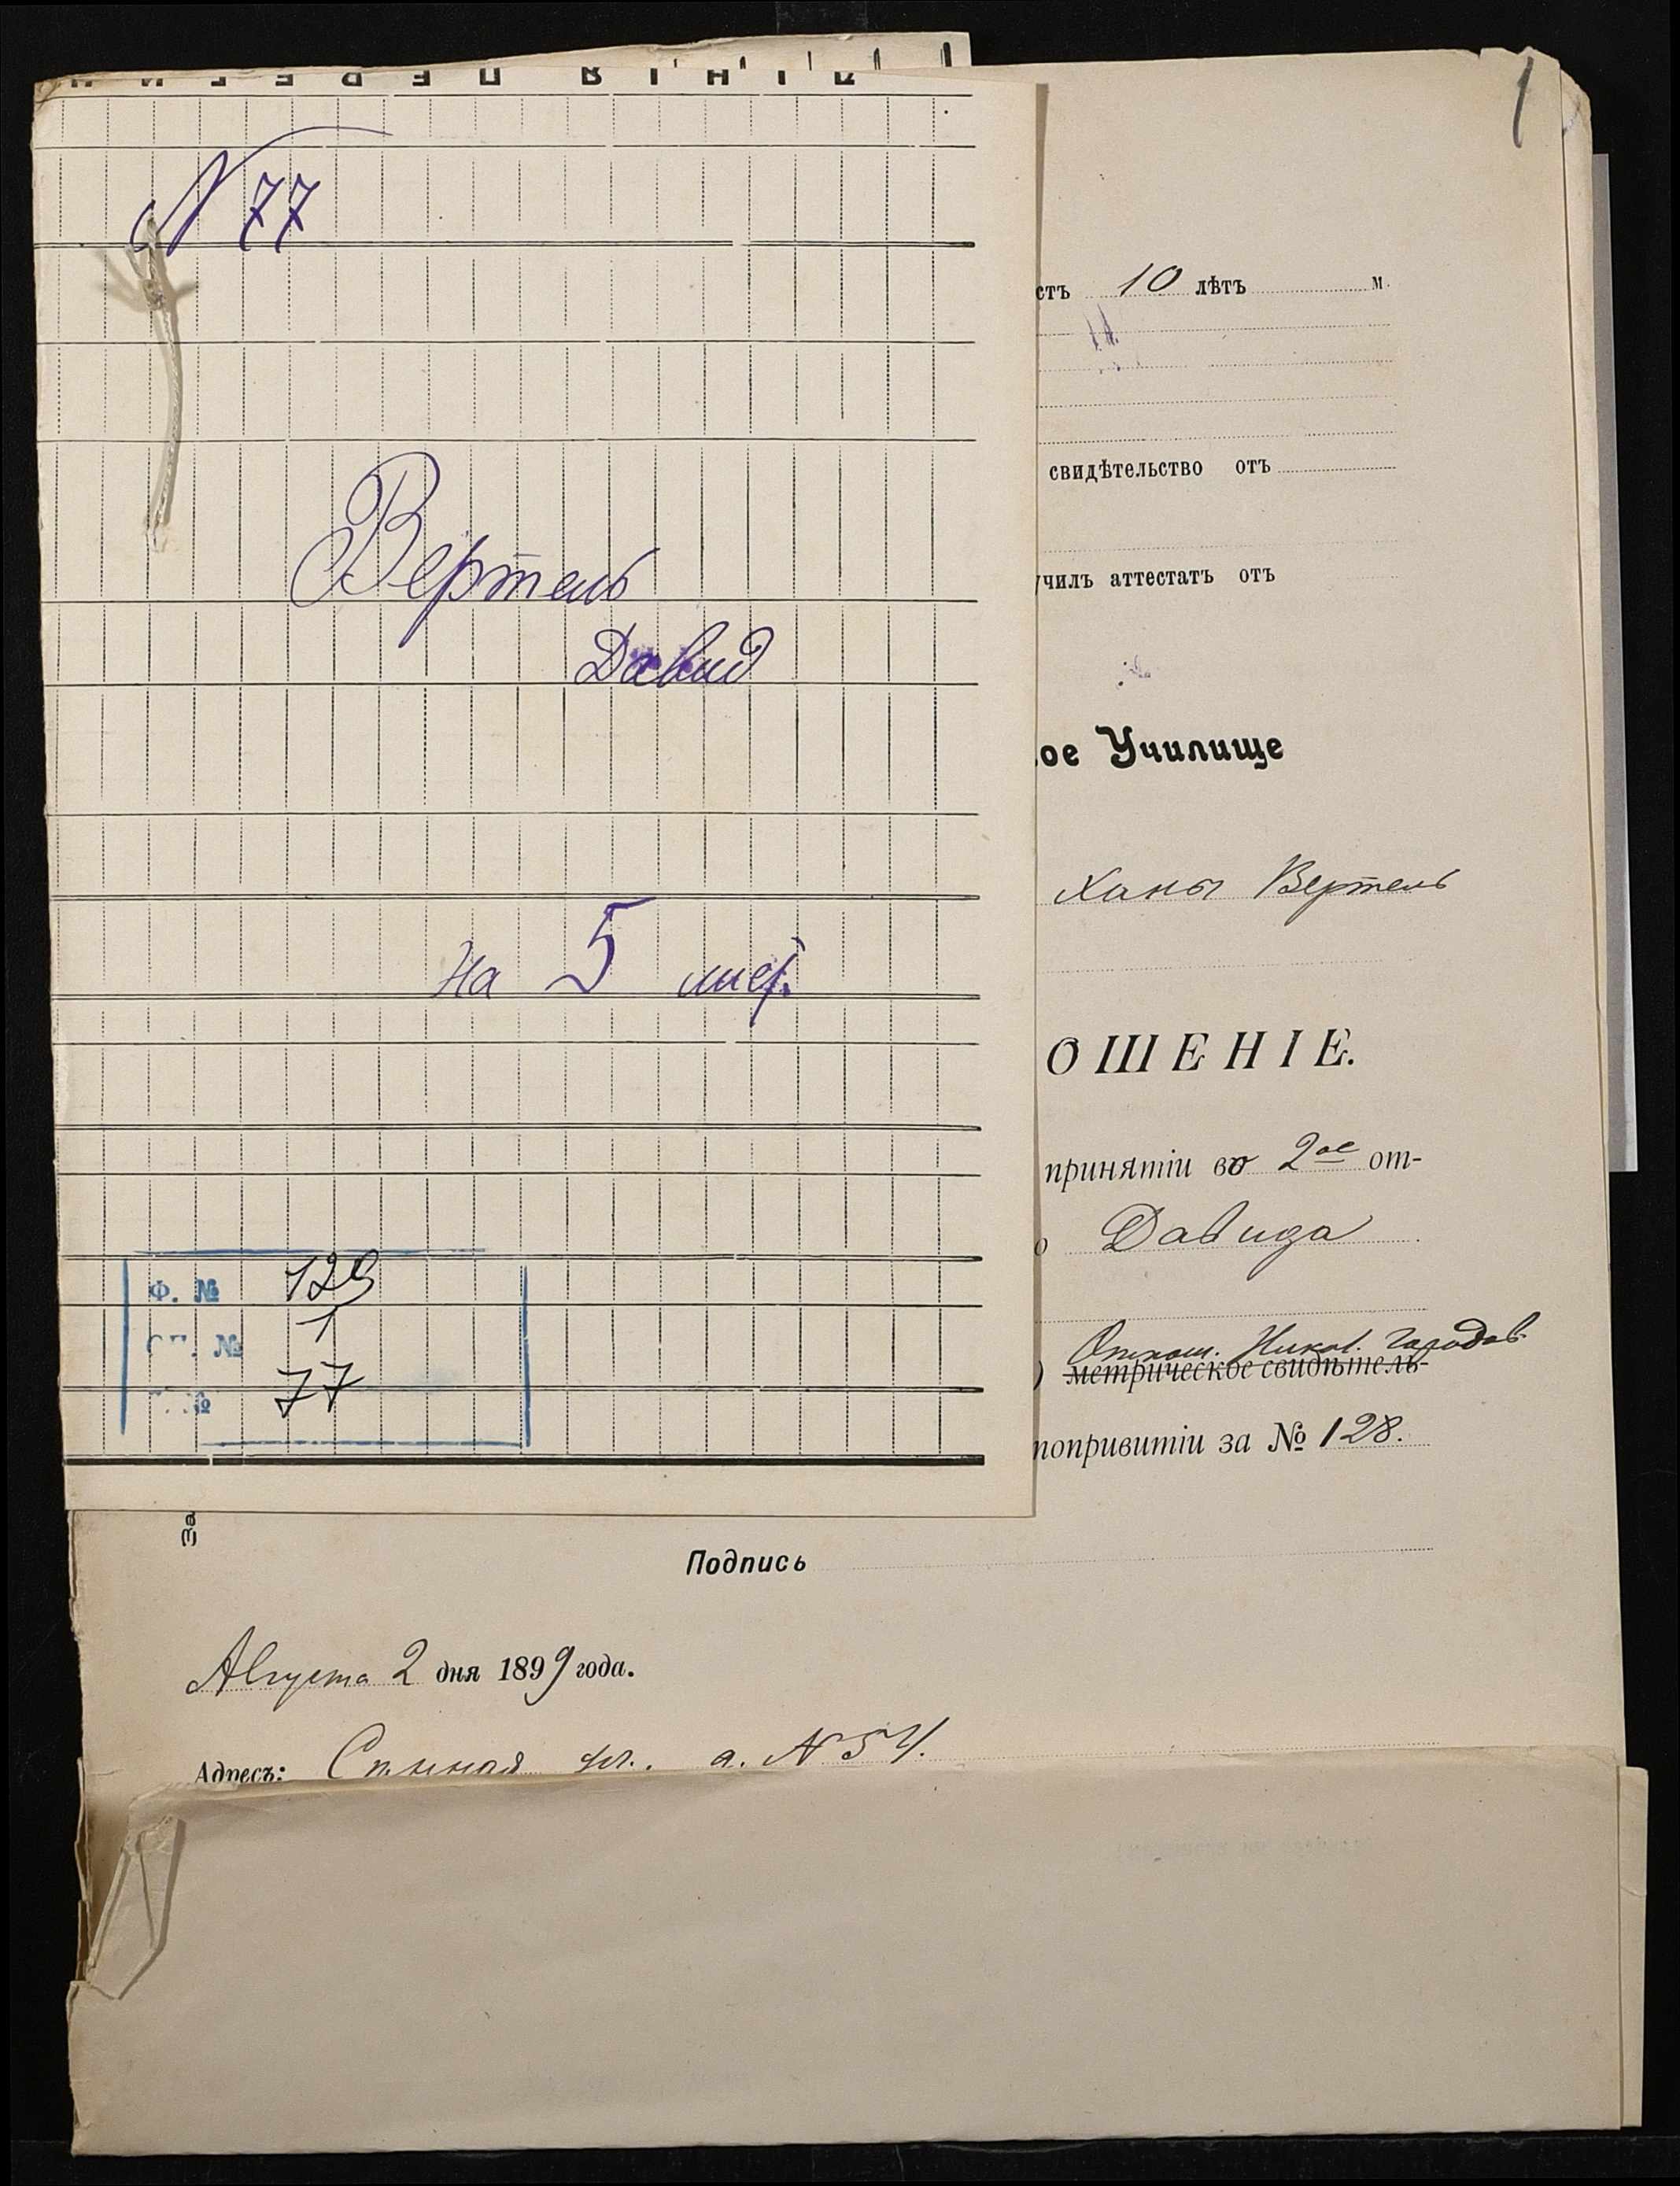 1
N 77
Вертель
Давид
На 5 лис.
Ф. № 129
ОП. № 1
№ 77
стъ 10 лѣтъ м.
свидѣтельство отъ
училъ аттестатъ отъ
ое Училище
Ханы Вертель
ОШЕНІЕ.
принятіи во 2ое от-
о Давида
Отнош. Никол. Городов.
) метрическое свидѣтель-
попривитіи за № 128.
За
Подпись
Августа 2 дня 1899 года.
Адресъ: ул. д. N 54.